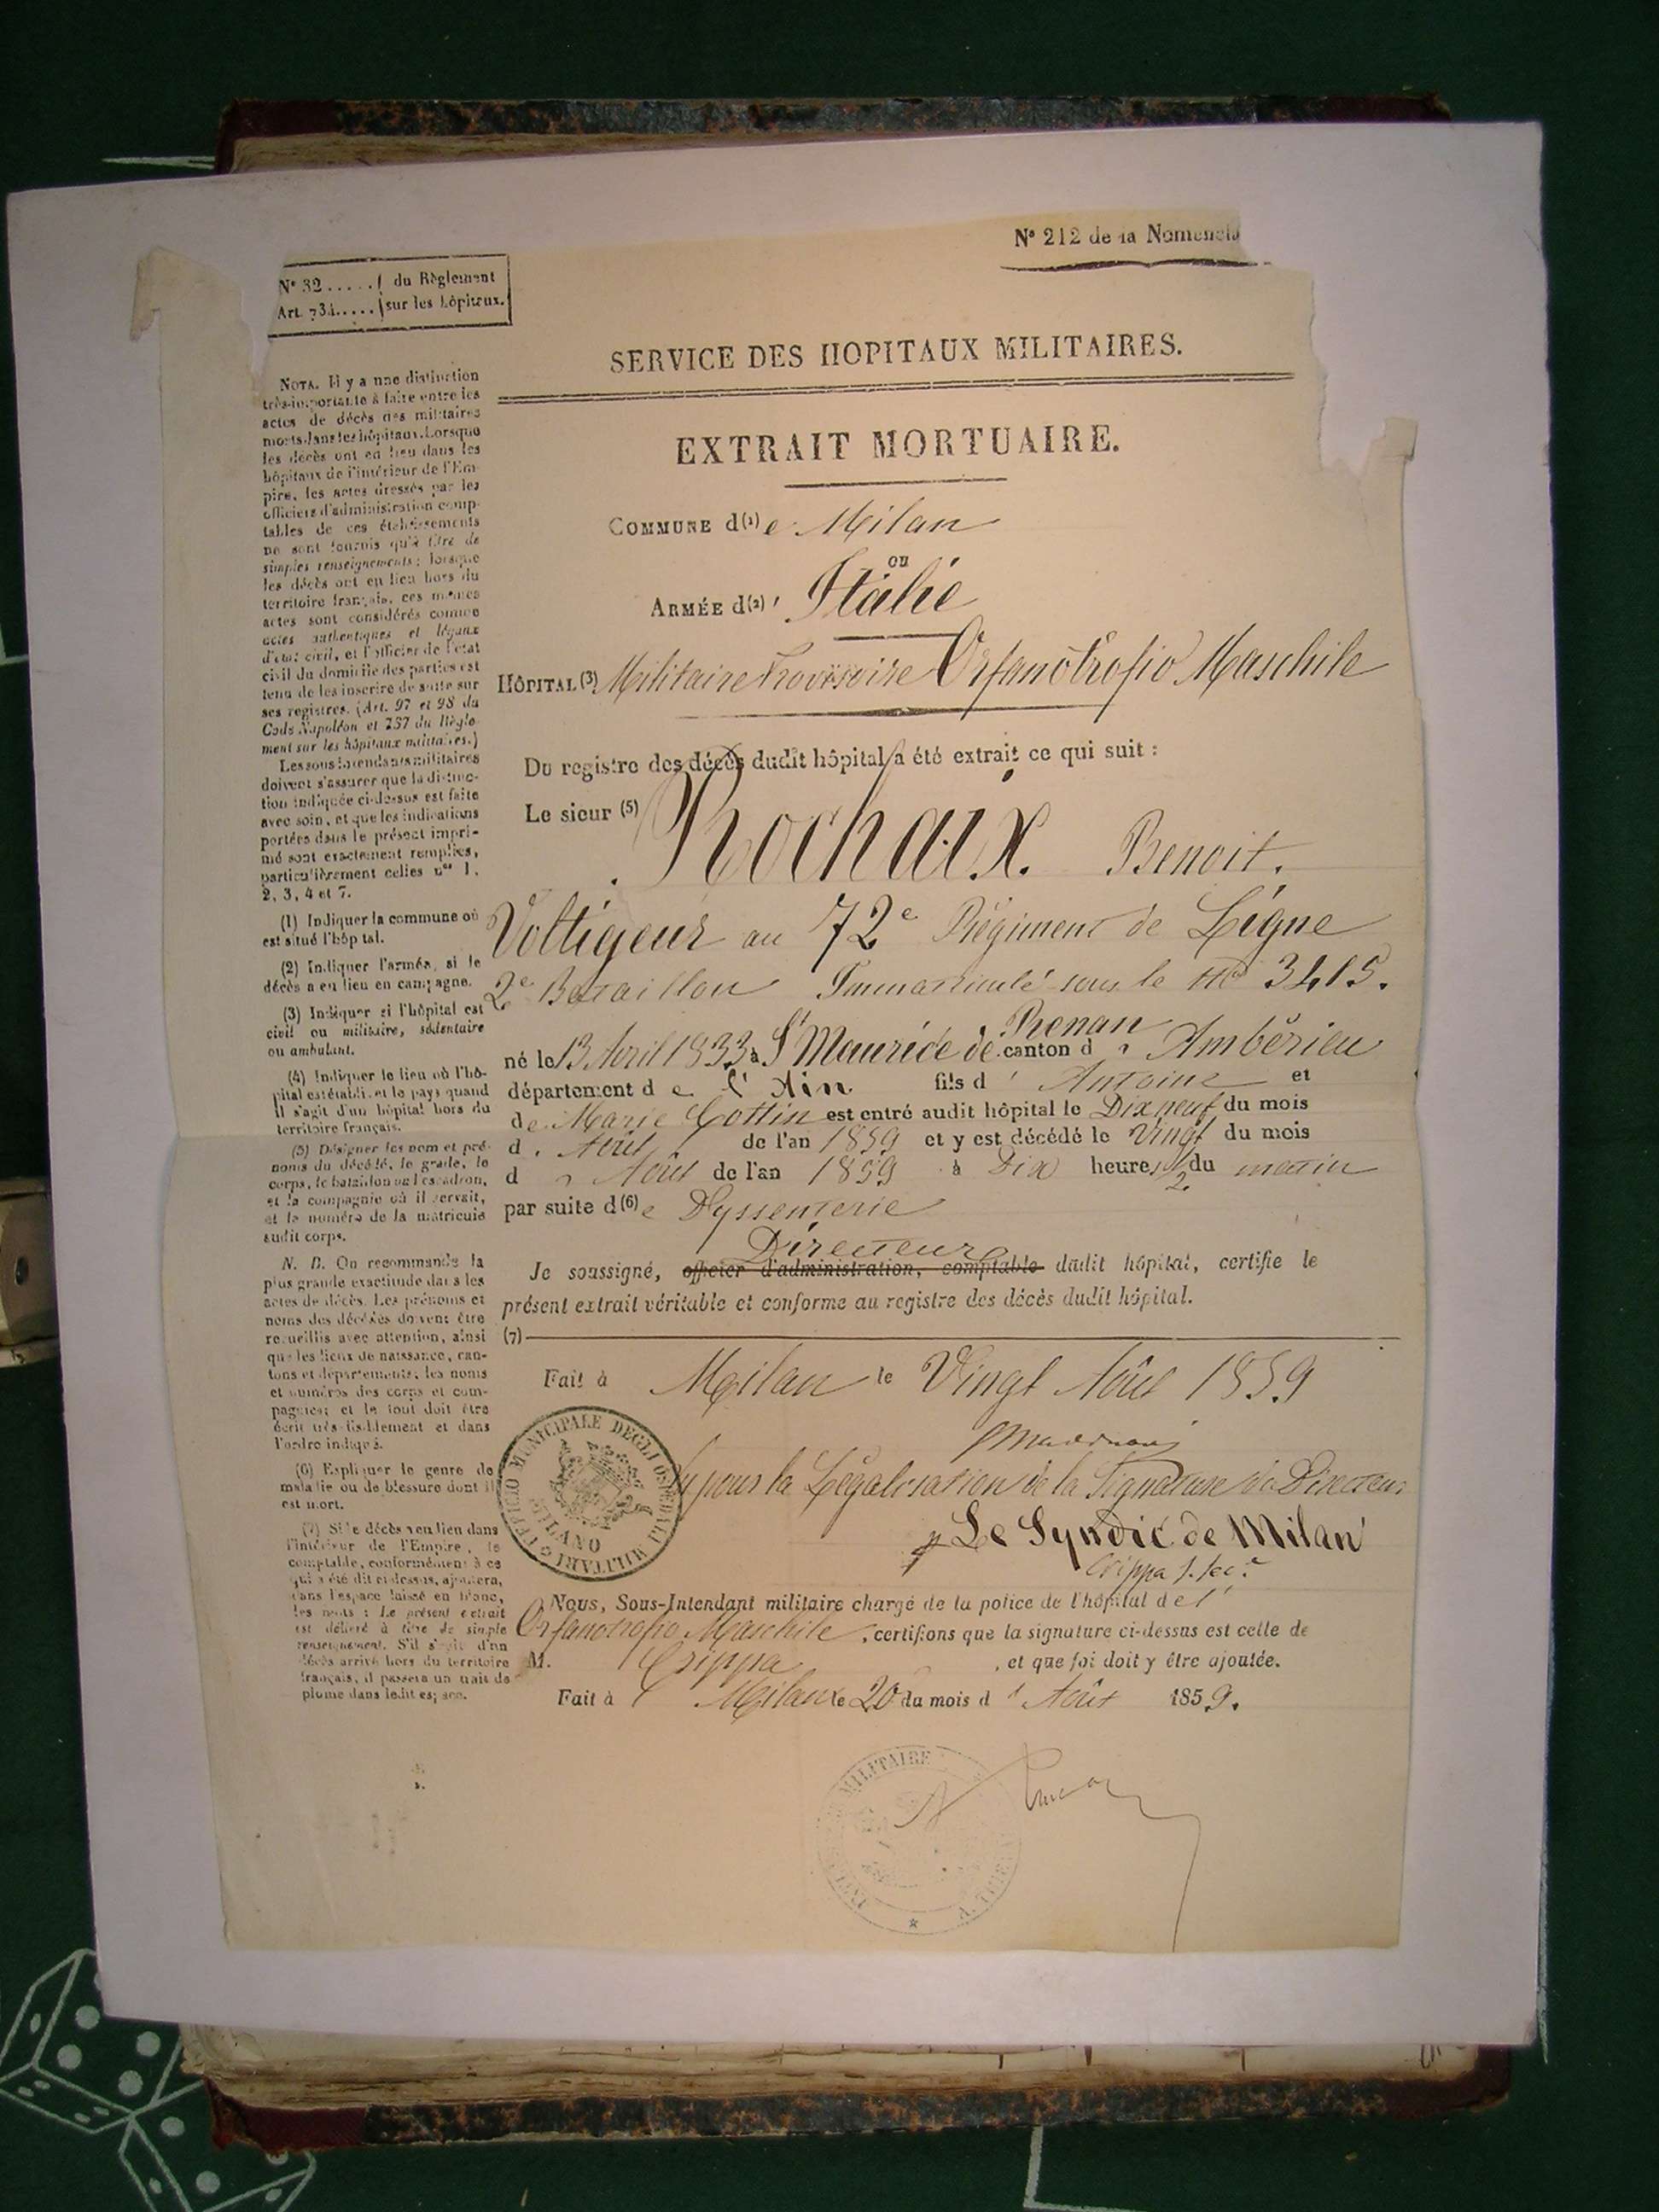 N° 212 de la Nomencla
N° 32 ..... du Règlement
Art. 734 ..... sur les hôpitaux.
SERVICE DES HOPITAUX MILITAIRES.
EXTRAIT MORTUAIRE.
COMMUNE d(1)e Milan
ou
ARMÉE d(2)' Italie
HÔPITAL (3) Militaire Provisoire Orfanotrofio Maschile
Du registre des décès dudit hôpital a été extrait ce qui suit :
Le sieur (5) Rochaix Benoit.
Voltigeur au 72e Régiment de Ligne
2e Bataillon Immatriculé sous le No 3415.
né le 13 Avril 1833 à St Maurice de Renan canton d' Ambérieu
département de l'Ain fils d' Antoine et
de Marie Cottin est entré audit hôpital le Dix neuf du mois
d' Août de l'an 1859 et y est décédé le Vingt du mois
d' Août de l'an 1859 à Dix heures 1/2 du matin
par suite d(6)e Dyssenterie
Directeur
Je soussigné, officier d'administration, comptable dudit hôpital, certifie le
présent extrait véritable et conforme au registre des décès dudit hôpital.
(7)
Fait à Milan le Vingt Août 1859
Vu pour la Légalisation de la Signature du Directeur
p Le Syndic de Milan
Crippa
UFFICIO MUNICIPALE DEGLI OSPEDALI MILITARI
MILANO
Nous, Sous-Intendant militaire chargé de la police de l'hôpital de l'
Orfanotrofio Maschile, certifions que la signature ci-dessus est celle de
M. Crippa, et que foi doit y être ajoutée.
Fait à Milan le 20 du mois d' Août 1859.
MILITAIRE
NOTA. Il y a une distinction
très-importante à faire entre les
actes de décès des militaires
morts dans les hôpitaux. Lorsque
les décès ont eu lieu dans les
hôpitaux de l'intérieur de l'Em-
pire, les actes dressés par les
officiers d'administration comp-
tables de ces établissements
ne sont fournis qu'à titre de
simples renseignements; lorsque
les décès ont eu lieu hors du
territoire français, ces mêmes
actes sont considérés comme
actes authentiques et légaux
d'état civil, et l'officier de l'état
civil du domicile des parties est
tenu de les inscrire de suite sur
ses registres. (Art. 97 et 98 du
Code Napoléon et 737 du Règle-
ment sur les hôpitaux militaires.)
Les sous-intendants militaires
doivent s'assurer que la distinc-
tion indiquée ci-dessus est faite
avec soin, et que les indications
portées dans le présent impri-
mé sont exactement remplies,
particulièrement celles nos 1,
2, 3, 4 et 7.
(1) Indiquer la commune où
est situé l'hôpital.
(2) Indiquer l'armée, si le
décès a eu lieu en campagne.
(3) Indiquer si l'hôpital est
civil ou militaire, sédentaire
ou ambulant.
(4) Indiquer le lieu où l'hô-
pital est établi, et le pays quand
il s'agit d'un hôpital hors du
territoire français.
(5) Désigner les nom et pré-
noms du décédé, le grade, le
corps, le bataillon ou l'escadron,
et la compagnie où il servait,
et le numéro de la matricule
audit corps.
N. B. On recommande la
plus grande exactitude dans les
actes de décès. Les prénoms et
noms des décédés doivent être
recueillis avec attention, ainsi
que les lieux de naissance, can-
tons et départements; les noms
et numéros des corps et com-
pagnies; et le tout doit être
écrit très-lisiblement et dans
l'ordre indiqué.
(6) Expliquer le genre de
maladie ou de blessure dont il
est mort.
(7) Si le décès a eu lieu dans
l'intérieur de l'Empire, le
comptable, conformément à ce
qui a été dit ci-dessus, ajoutera,
dans l'espace laissé en blanc,
les mots : Le présent extrait
est délivré à titre de simple
renseignement. S'il s'agit d'un
décès arrivé hors du territoire
français, il passera un trait de
plume dans ledit espace.